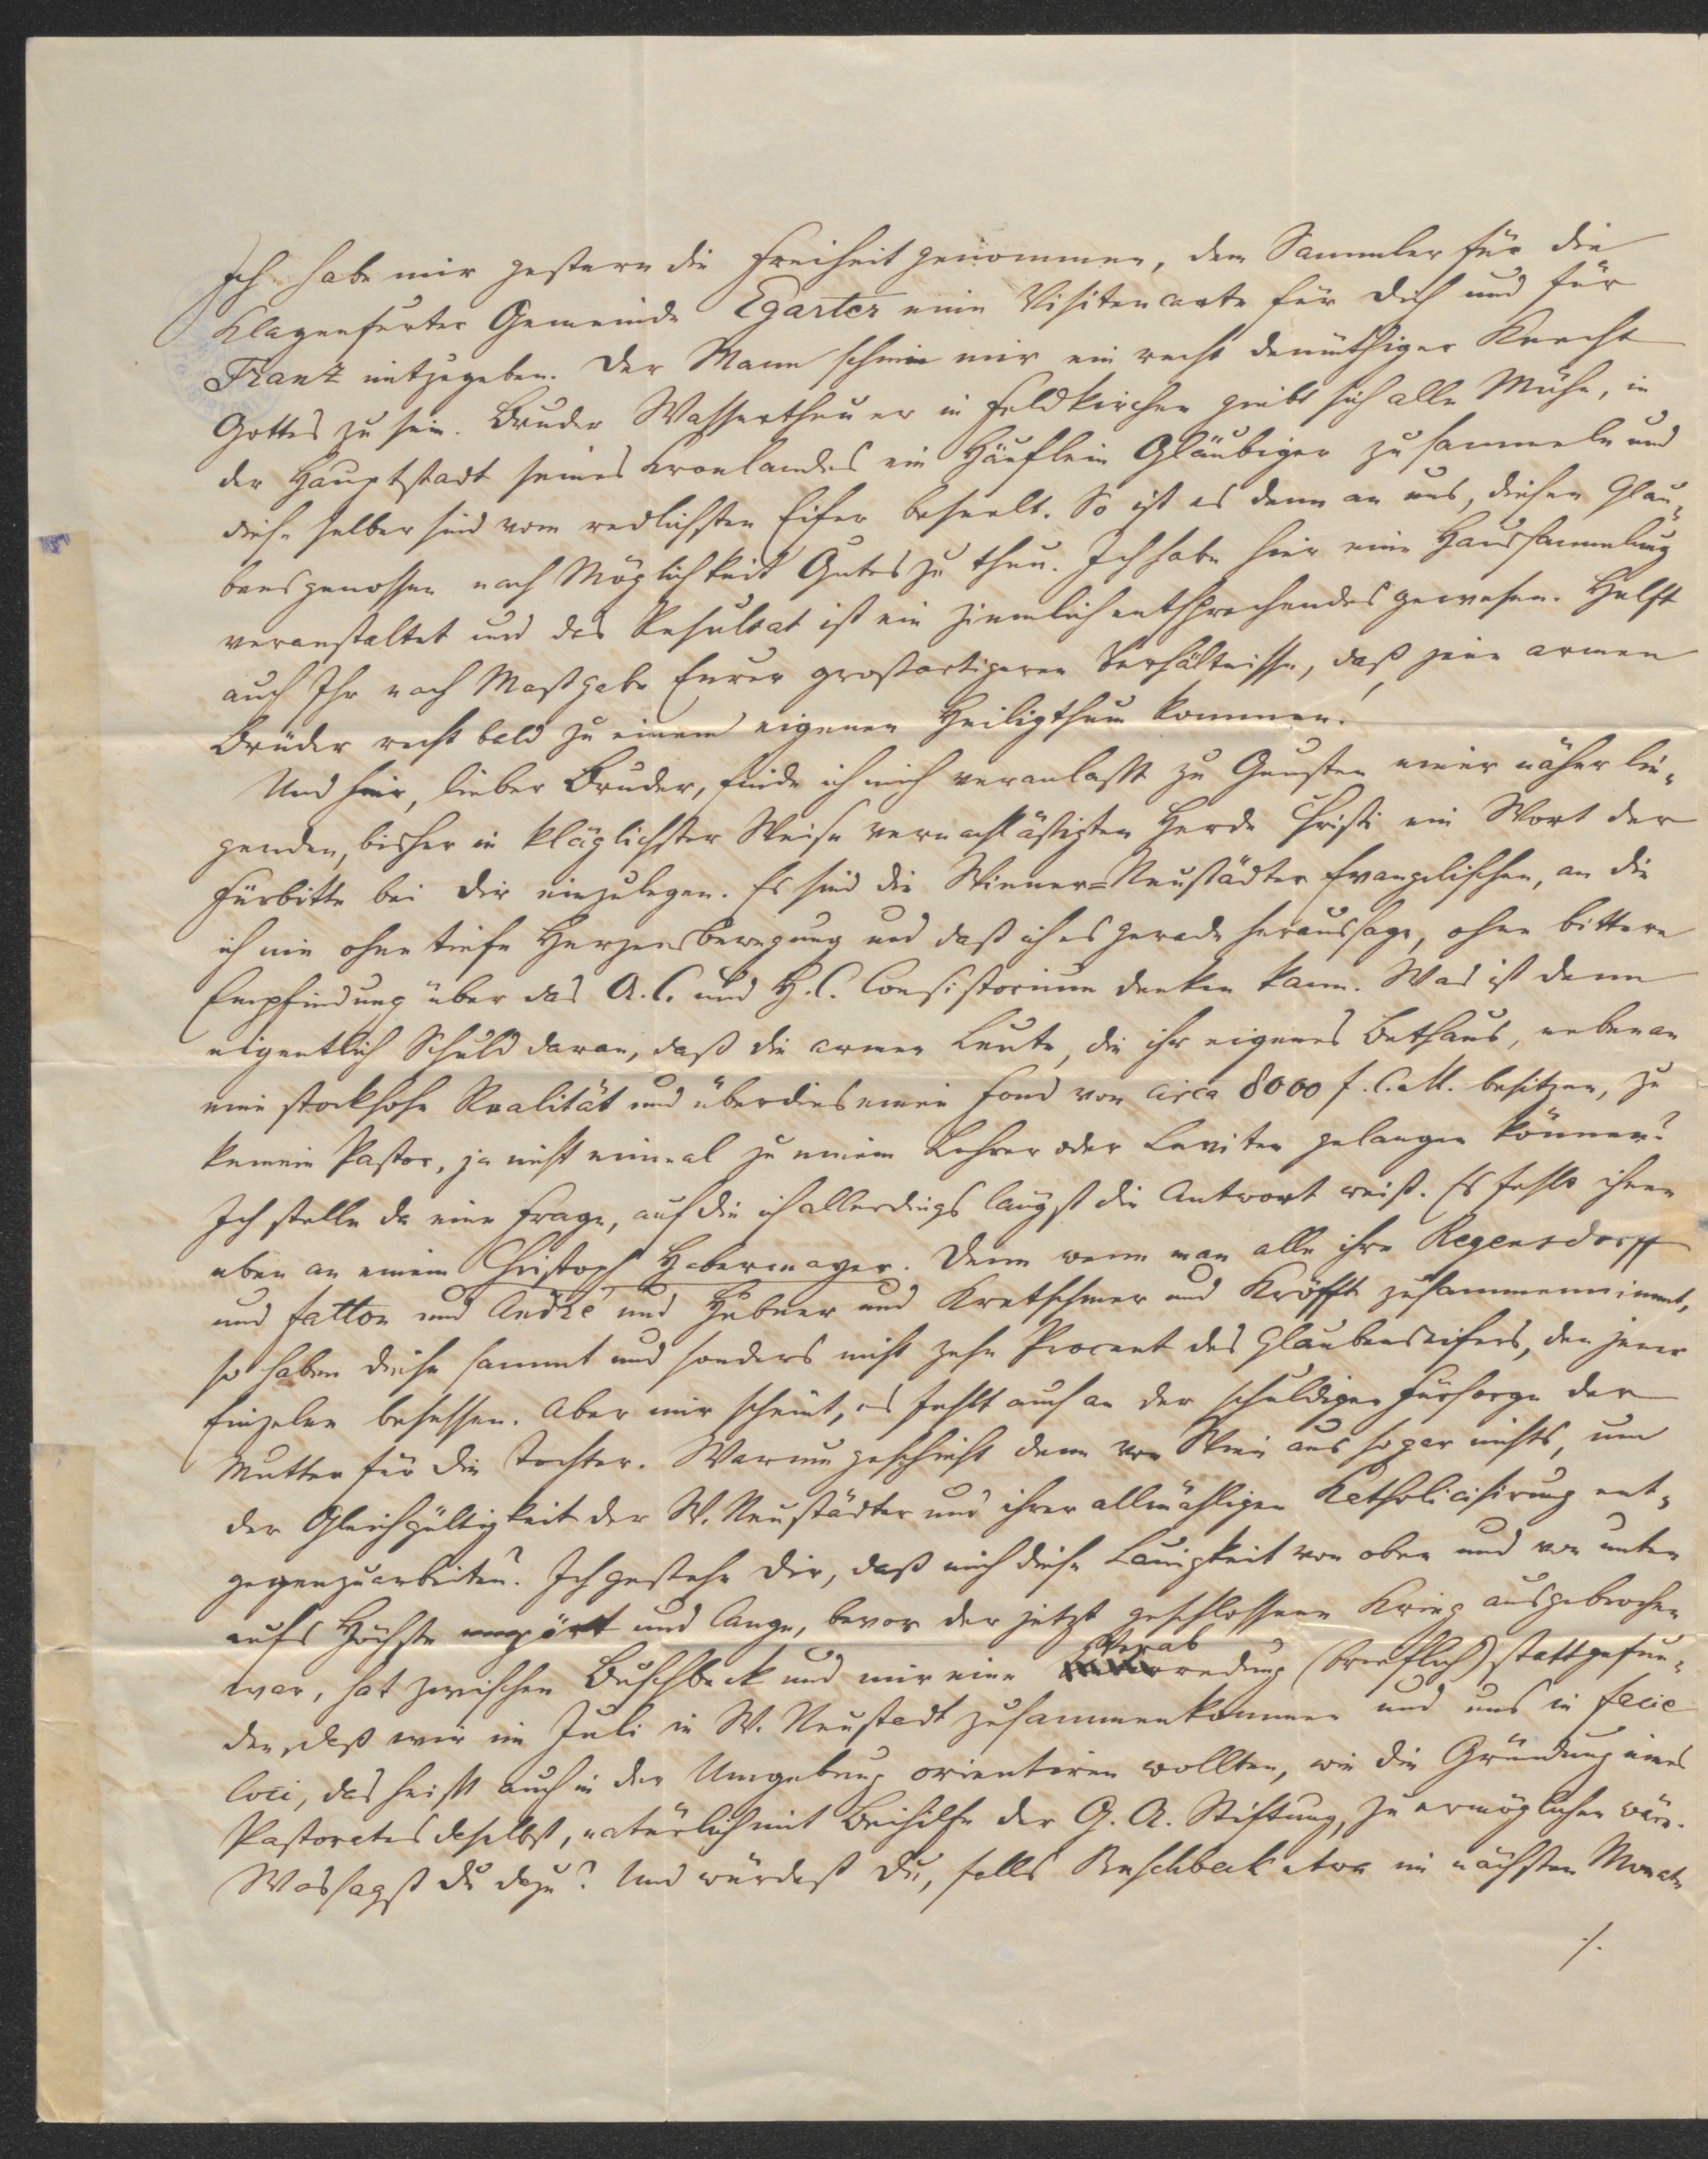 Ich habe mir gestern die Freiheit genommen, dem Sammler für die
Klagenfurter Gemeinde Egarter eine Visitencarte für Dich und für
Franz mitzugeben. Der Mann schien mir ein recht demüthiger Knecht
Gottes zu sein. Bruder Wassertheurer in Feldkirchen giebt sich alle Mühe, in
der Hauptstadt seines Kronlandes ein Häuflein Gläubiger zu sammeln und
diese selber sind vom redlichsten Eifer beseelt. So ist es denn an uns, diesen Glau-
bensgenossen nach Möglichkeit Gutes zu thun. Ich habe hier eine Haussammlung
veranstaltet und das Resultat ist ein ziemlich entsprechendes gewesen. Helft
auch Ihr nach Maßgabe Eurer großartigeren Verhältnisse, daß jene armen
Brüder recht bald zu einem eigenen Heiligthum kommen!
Und hier, lieber Bruder, finde ich mich veranlaßt zu Gunsten einer näher lie-
genden, bisher in kläglichster Weise vernachläßigten Herde Christi ein Wort der
Fürbitte bei Dir einzulegen. Es sind die Wiener-Neustädter Evangelischen, an die
ich nie ohne tiefe Herzensbewegung und daß ich es gerade heraussage, ohne bittere
Empfindung über das A.C. und H.C. Consistorium denken kann. Was ist denn
eigentlich Schuld daran, daß die armen Leute, die ihr eigenes Bethaus, nebenan
eine stockhohe Realität und überdies einen Fond von circa 8000 f. C.M. besitzen, zu
keinem Pastor, ja nicht einmal zu einem Lehrer oder Leviten gelangen können?
Ich stelle da eine Frage, auf die ich allerdings längst die Antwort weiß. Es fehlt ihnen
eben an einem Christoph Habermayer. Denn wenn man alle ihre Regensdorff
und Fatton und André und Hübner und Kretschmer und Kröfft zusammennimmt,
so haben diese sammt und sonders nicht zehn Procent des Glaubenseifers, den jener
Einzelne besessen. Aber mir scheint, es fehlt auch an der schuldigen Fürsorge der
Mutter für die Tochter. Warum geschieht denn von Wien aus so gar nichts, um
der Gleichgültigkeit der W. Neustädter und ihrer allmähligen Katholicisirung ent-
gegenzuarbeiten? Ich gestehe Dir, daß mich diese Lauigkeit von oben und von unten
aufs Höchste empört und lange, bevor der jetzt geschlossene Krieg ausgebrochen
war, hat zwischen Buschbeck und mir eine Verabredung (brieflich) stattgefun-
den, daß wir im Juli in W. Neustadt zusammenkommen und uns in facie
loci, das heißt auch in der Umgebung orientiren wollten, wie die Gründung eines
Pastorates daselbst, natürlich mit Beihilfe der G. A. Stiftung, zu ermöglichen wäre.
Was sagst Du dazu? Und würdest Du, falls Buschbeck etwa im nächsten Monate
./.